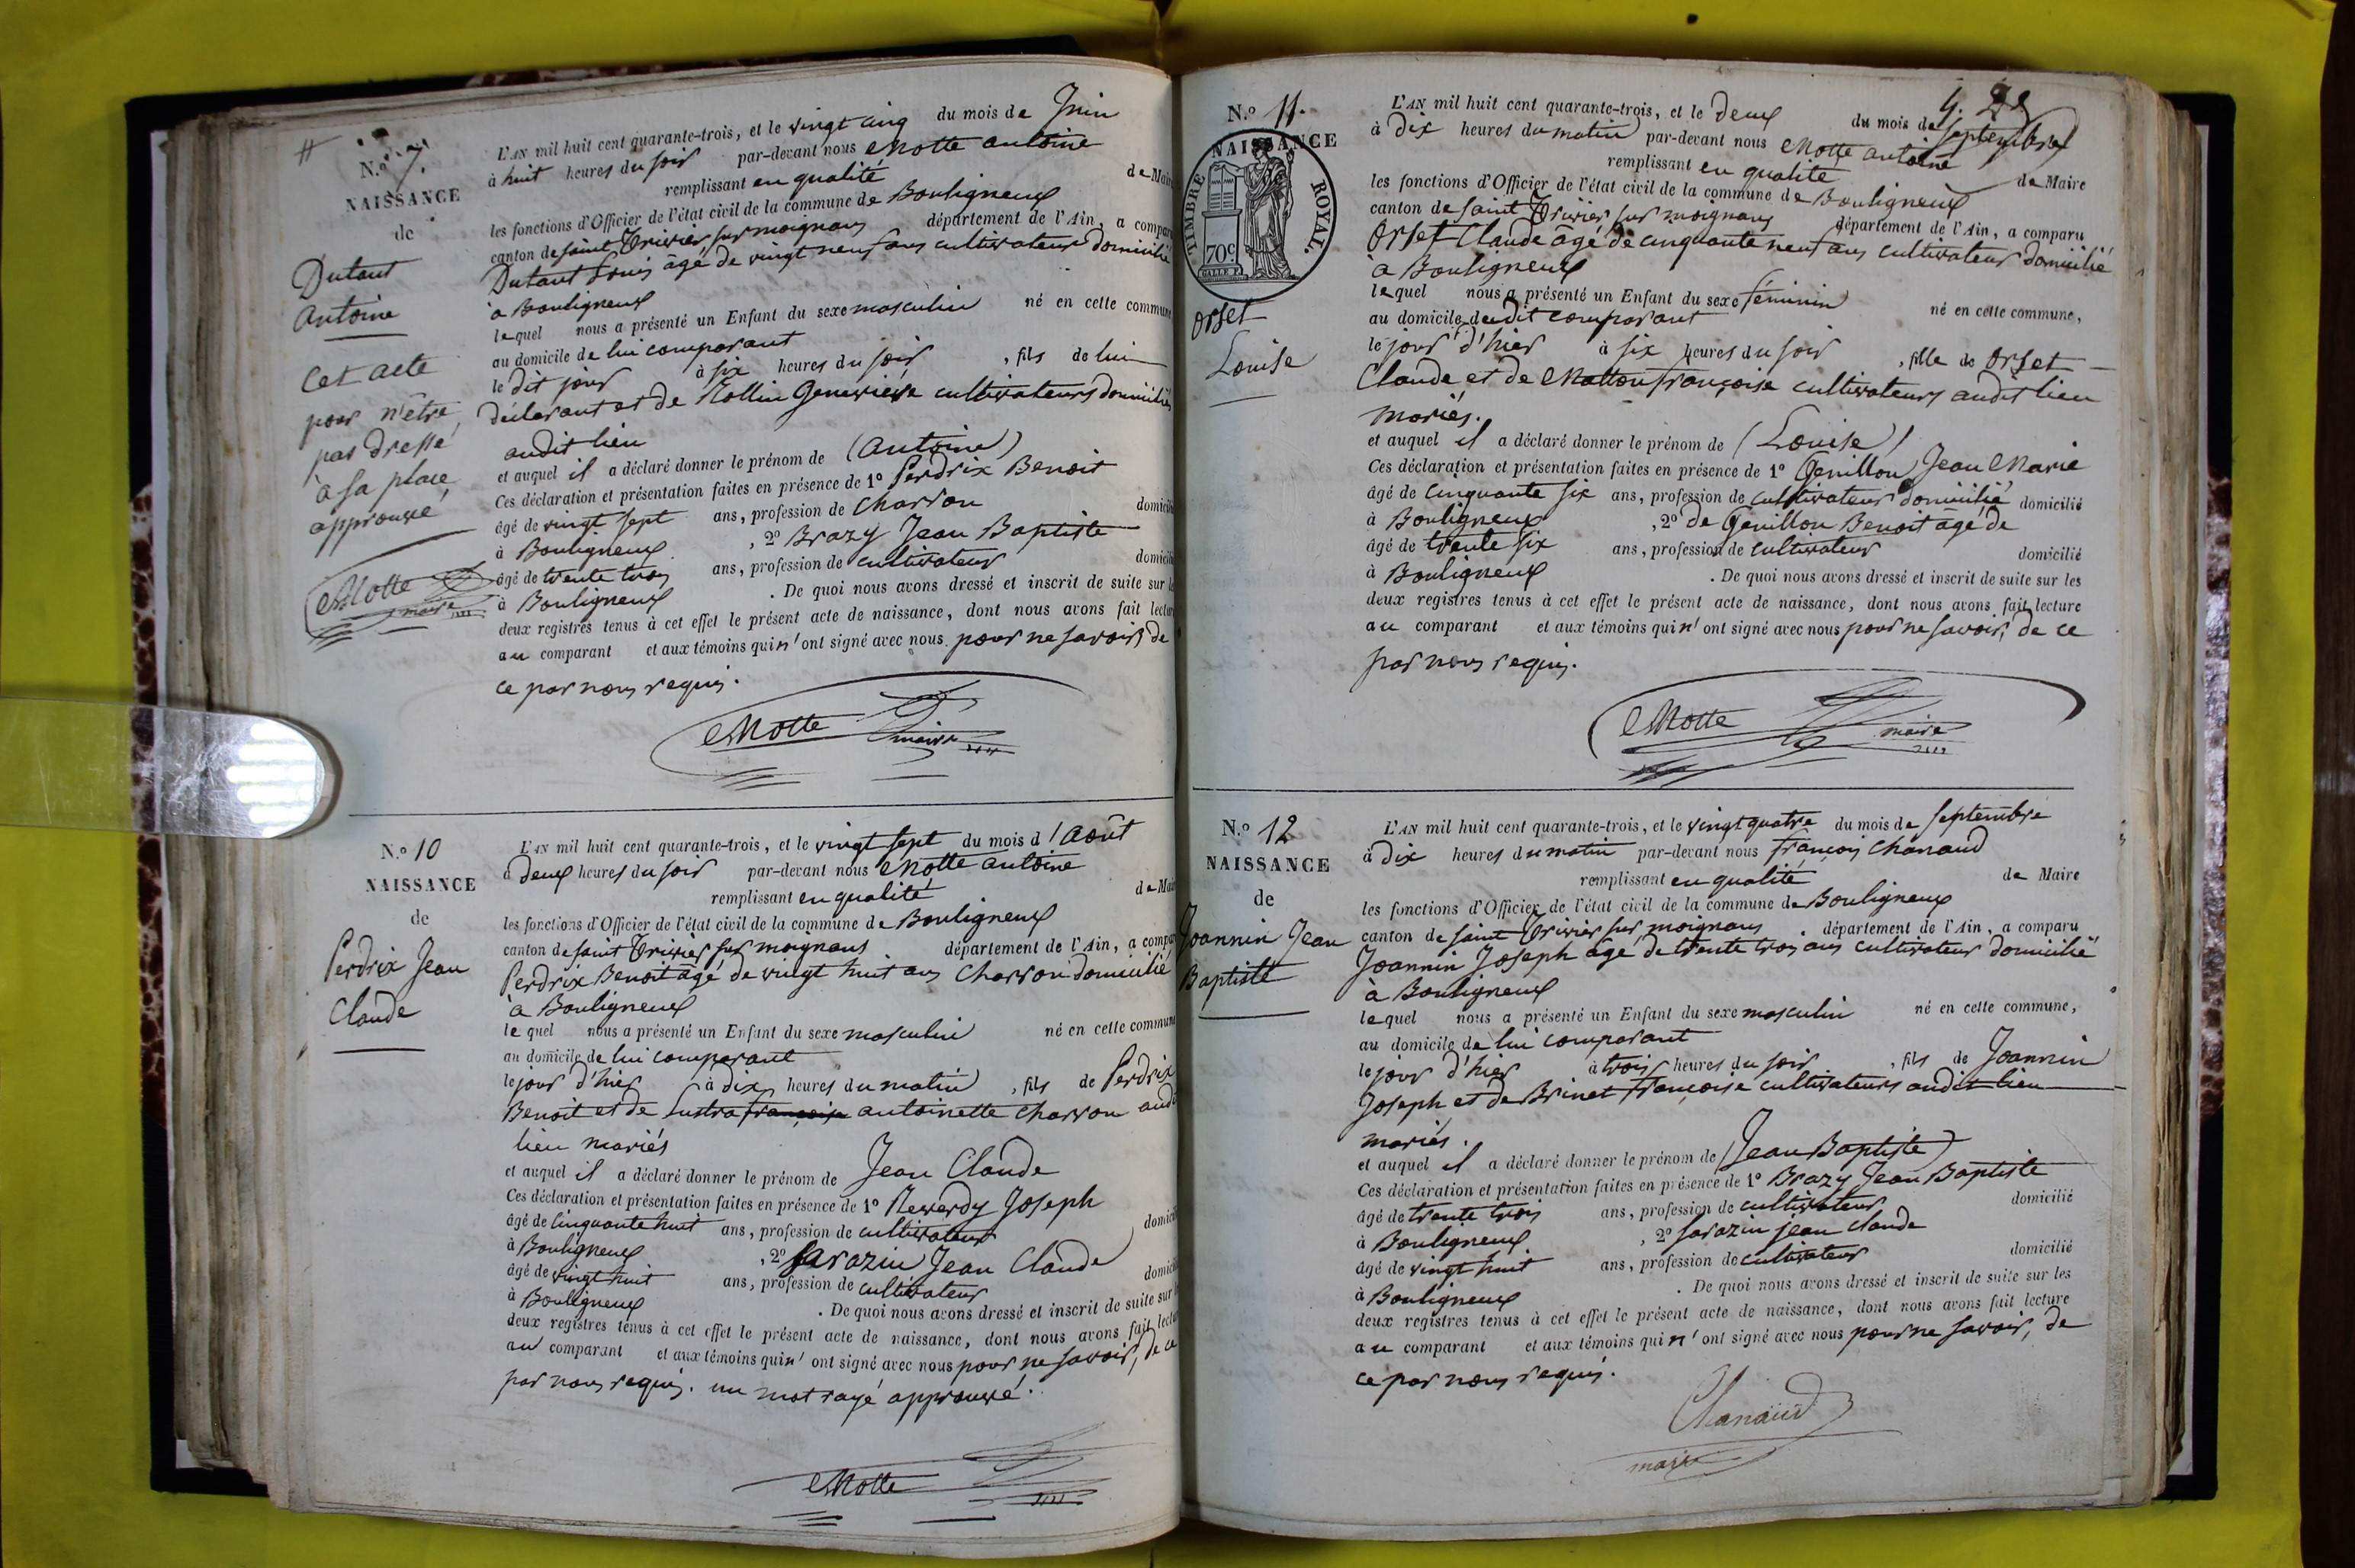 N.o 7.
NAISSANCE
de
Dutant
Antoine
Cet acte
pour n'être
pas dressé
à sa place,
approuvé
Motte
maire
L'AN mil huit cent quarante-trois, et le vingt cinq du mois de Juin
à huit heures du soir par-devant nous Motte antoine
remplissant en qualité de Maire
les fonctions d'Officier de l'état civil de la commune de Bouligneux
canton de saint Trivier sur moignans département de l'Ain, a comparu
Dutant Louis âgé de vingt neuf ans cultivateur domicilié
à Bouligneux
lequel nous a présenté un Enfant du sexe masculin né en cette commune
au domicile de lui comparant
le dit jour à six heures du soir, fils de lui
déclarant et de Genevieve cultivateurs domiciliés
audit lieu
et auquel il a déclaré donner le prénom de (Antoine)
Ces déclaration et présentation faites en présence de 1o Perdrix Benoit
âgé de vingt sept ans, profession de Charron domicilié
à Bouligneux, 2o Brazy Jean Baptiste
âgé de trente trois ans, profession de cultivateur domicilié
à Bouligneux. De quoi nous avons dressé et inscrit de suite sur les
deux registres tenus à cet effet le présent acte de naissance, dont nous avons fait lecture
au comparant et aux témoins qui n'ont signé avec nous pour ne savoir, de
ce par nous requis.
Motte
maire
N.o 10
NAISSANCE
de
Perdrix Jean
Claude
L'AN mil huit cent quarante-trois, et le vingt sept du mois d'Août
à deux heures du soir par-devant nous Motte antoine
remplissant en qualité de Maire
les fonctions d'Officier de l'état civil de la commune de Bouligneux
canton de saint Trivier sur moignans département de l'Ain, a comparu
Perdrix Benoit âgé de vingt huit ans Charron domicilié
à Bouligneux
le quel nous a présenté un Enfant du sexe masculin né en cette commune
au domicile de lui comparant
le jour d'hier à dix heures du matin, fils de Perdrix
Benoit et de Lustra françoise antoinette charron audit
lieu mariés
et auquel il a déclaré donner le prénom de Jean Claude
Ces déclaration et présentation faites en présence de 1o Rewerdy Joseph
âgé de Cinquante huit ans, profession de cultivateur domicilié
à Bouligneux, 2o Sarazin Jean Claude
âgé de vingt huit ans, profession de cultivateur domicilié
à Bouligneux. De quoi nous avons dressé et inscrit de suite sur les
deux registres tenus à cet effet le présent acte de naissance, dont nous avons fait lecture
au comparant et aux témoins qui n'ont signé avec nous pour ne savoir, de ce
par nous requis. un mot rayé approuvé.
Motte
N.o 11.
NAISSANCE
TIMBRE ROYAL.
70c
Orset
Louise
L'AN mil huit cent quarante-trois, et le deux du mois de septembre
à dix heures du matin par-devant nous Motte antoine
remplissant en qualité de Maire
les fonctions d'Officier de l'état civil de la commune de Bouligneux
canton de saint Trivier sur moignans département de l'Ain, a comparu
Orset Claude âgé de cinquante neuf ans cultivateur domicilié
à Bouligneux
lequel nous a présenté un Enfant du sexe féminin né en cette commune,
au domicile dudit comparant
le jour d'hier à six heures du soir, fille de Orset
Claude et de Matton françoise cultivateurs audit lieu
mariés.
et auquel il a déclaré donner le prénom de (Louise)
Ces déclaration et présentation faites en présence de 1o Genillon Jean Marie
âgé de cinquante six ans, profession de cultivateur domicilié domicilié
à Bouligneux, 2o de Genillon Benoit âgé de
âgé de trente six ans, profession de cultivateur domicilié
à Bouligneux. De quoi nous avons dressé et inscrit de suite sur les
deux registres tenus à cet effet le présent acte de naissance, dont nous avons fait lecture
au comparant et aux témoins qui n'ont signé avec nous pour ne savoir, de ce
par nous requis.
Motte
maire
N.o 12
NAISSANCE
de
Joannin Jean
Baptiste
L'AN mil huit cent quarante-trois, et le vingt quatre du mois de septembre
à dix heures du matin par-devant nous françois Chanaud
remplissant en qualité de Maire
les fonctions d'Officier de l'état civil de la commune de Bouligneux
canton de saint Trivier sur moignans département de l'Ain, a comparu
Joannin Joseph âgé de trente trois ans cultivateur domicilié
à Bouligneux
lequel nous a présenté un Enfant du sexe masculin né en cette commune,
au domicile de lui comparant
le jour d'hier à trois heures du soir, fils de Joannin
Joseph et de Brinet françoise cultivateurs audit lieu
mariés.
et auquel il a déclaré donner le prénom de (Jean Baptiste)
Ces déclaration et présentation faites en présence de 1o Brazy Jean Baptiste
âgé de trente trois ans, profession de cultivateur domicilié
à Bouligneux, 2o Sarazin jean Claude
âgé de vingt huit ans, profession de cultivateur domicilié
à Bouligneux. De quoi nous avons dressé et inscrit de suite sur les
deux registres tenus à cet effet le présent acte de naissance, dont nous avons fait lecture
au comparant et aux témoins qui n'ont signé avec nous pour ne savoir, de
ce par nous requis.
Chanaud
maire